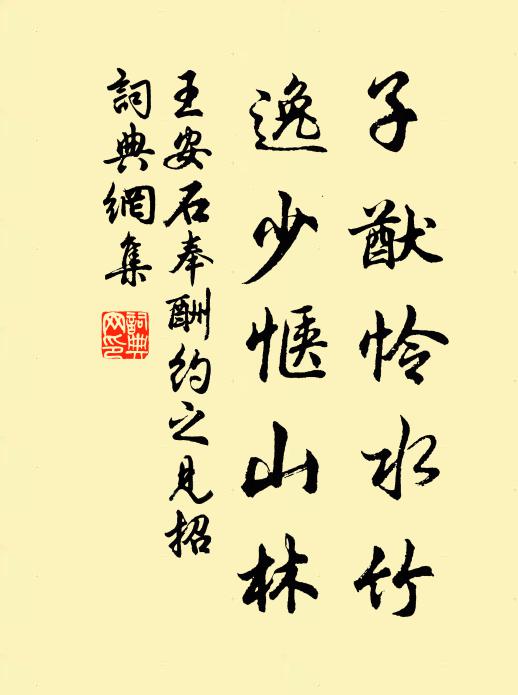 子猷怜水竹
逸少惬山林
王安石奉酬约之見招
詞典網集
詞典网印